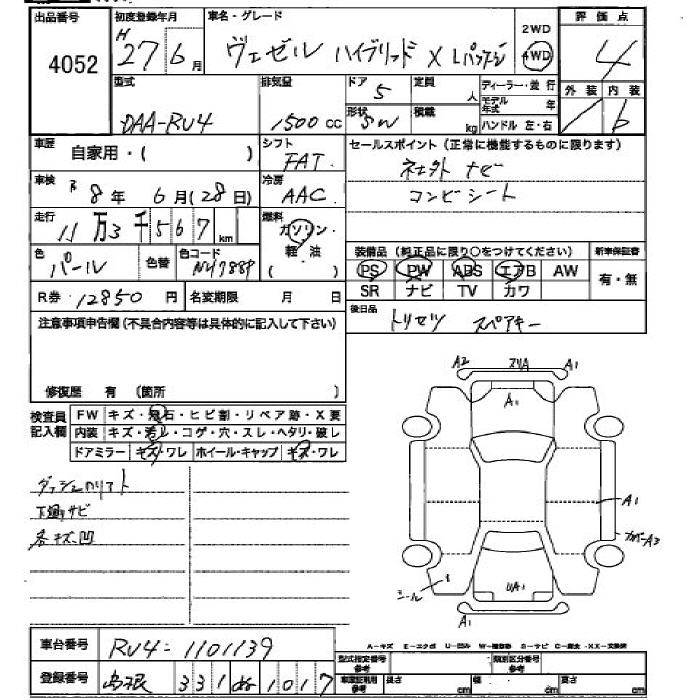 出品番号 初度登録年月 車名・グレード 評価点
4052 H 27年6月 ヴェゼル ハイブリッド X Lパッケージ 2WD 4WD 4
型式 排気量 ドア 5 定員 人 ディーラー・並行 外装 内装
DAA-RU4 1500 cc 形状 SW 積載 kg モデル年式 年 ハンドル 左・右 b
車歴 自家用・( ) シフト FAT セールスポイント(正常に機能するものに限ります)
車検 R 8年 6月(28日) 冷房 AAC
ナビ
コンビシート
走行 11万3千567km 燃料 ガソリン・軽油( )
装備品(純正品に限り○をつけてください) 新車保証書
色 パール 色替 色コード NH788P PS PW ABS エアB AW 有・無
SR ナビ TV カワ
R券 12850円 名変期限 月 日
後日品 トリセツ スペアキー
注意事項申告欄(不具合内容等は具体的に記入して下さい)
修復歴 有 (箇所 )
検査員記入欄 FW キズ・飛石・ヒビ割・リペア跡・X要
内装 キズ・汚レ・コゲ・穴・スレ・ヘタリ・破レ
ドアミラー キズ・ワレ ホイール・キャップ キズ・ワレ
下廻りサビ
各キズ凹
A2 スリA A1
A1
A1
カバーA3
シール
UA1
A1
A-キズ E-エクボ U-凹み W-補修跡 S-サビ C-腐食 XX-交換済
車台番号 RU4-1101139
登録番号 島根 331 ぬ 1017
型式指定番号 参考 類別区分番号 参考
車車証明用 参考 長さ cm 幅 cm 高さ cm